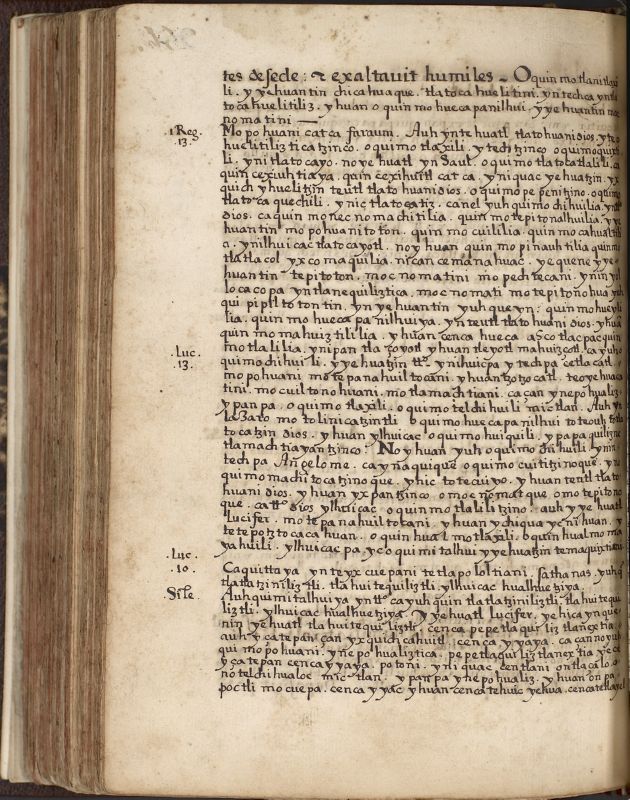 tes de sede : & exaltavit humiles - O quin mo tlani tlaxi
li . y yehuantin chicahuaque . tlatoca huelitini . yntechca yntla
toca huelitiliz . yhuan o quin mo hueca panilhui . y yehuantin moc
no matini —
1 Reg. 13. Mo pohuani catca faraum . Auh yntehuatl tlatohuani dios . yte
huelitiliztica tzinco . o quimo tlaxili . y techtzinco o quimo quixti
li . y ni tlatocayo . no yehuatl yn Saul . o quimo tlatocatlalili . ca
quin cexiuhtiaya . quin cexihuitl catca . y niquac yehuatzin . yx
quich y huelitzin teutl tlatohuani dios . o quimo pepenitzino . o quimo
tlatoca quechili . y nic tlatocatiz . ca nel yuh quimo chihuilia . yn tt.o
dios . ca quin mo nec no machitilia . quin mo tepitonalhuilia . y ye
huantin mo pohuanitoton . quin mo cuililia . quin mo cahualti
a . ynilhuicac tlatocayotl . no yhuan quin mo pinauhtilia quin mo
tlatlacol yxcomaquilia . nican cemanahuac . ye quene y ye
huantin tepitoton . moc no matini mo pechtecani . y nin yol
loca copa yn tlanequiliztica . moc no mati mo tepitonohua yuh
qui pipiltotontin . yn yehuantin yuhque yn : quin mo hueyli
lia . quin mo hueca panilhuiya . yn teutl tlatohuani dios . yhuan
quin mo mahuiztililia . yhuan cenca hueca a%co tlacpac quin
mo tlalilia . ynipan tlaçoyotl yhuan tleyotl mahuizcotl . ca yuh o
Luc. 13. quimo chihuili . y yehuatzin tt.o ynihuicpa y techpa ce tlacatl .
mo pohuani . mo te panahuiltocani . yhuan tzotzocatl . teoyehuaca
tini . mo cuiltonohuani . mo tlamachtiani . ca çan y nepohualiz .
y panpa . o quimo tlaxili . o quimo telchihuili mictlan . Auh yn
laʒaro motolinicatzintli o quimo hueca panilhui to teouh tlato
tocatzin dios . yhuan ylhuicac o quimo huiquili . y papaquilizne
tlamachtiayantzinco . No yhuan yuh o quimo chihuili . ynin
techpa Angelome . ca ynaquique o quimo cuititzinoque . yn
quimo machitocatzinoque . yhic totecuiyo . yhuan teutl tlato
huani dios . yhuan yxpantzinco . omoc no matque . omo tepitono
que . ca tt.o dios ylhuicac . o quin mo tlalilitzino . auh y yehuatl
Lucifer . mo tepanahuiltocani . yhuan ychiquac ycnihuan . y
tetepotztocacahuan . o quin hual motlaxili . o quin hualmo ma
Luc. 10. yahuili . ylhuicac pa . yc o quimitalhui y yehuatzin temaquixtiani
Caquittaya yn te yxcuepani tetlapololtiani . sathanas . yuhqu
tlatlatziniliztli . tlahuitequiliztli ylhuicac hualhuetziya .
Sile. Auh quimitalhuiya yn tt.o ca yuhquin tlatlatziniliztli . tlahuitequi
liztli . ylhuicac hualhuetziya . Y yehuatl Lucifer . yehica ynque
nin yehuatl tlahuitequiliztli . cenca pepetlaquiliz tlanextia .
auh yçatepan çan yxquichcahuitl cenca y yaya . ca canno yuh
qui mo pohuani . yne pohualiztica . pepetlaquiliztlanextia yece
y çatepan cenca y yaya . potoni . yn iquac centlani ontlaçalo . o
notelchihualoc mictlan . y panpa yne pohualiz . yhuan on pa
poctli mo cuepa . cenca y yac yhuan cenca tehuic yehua . cenca tetlayel